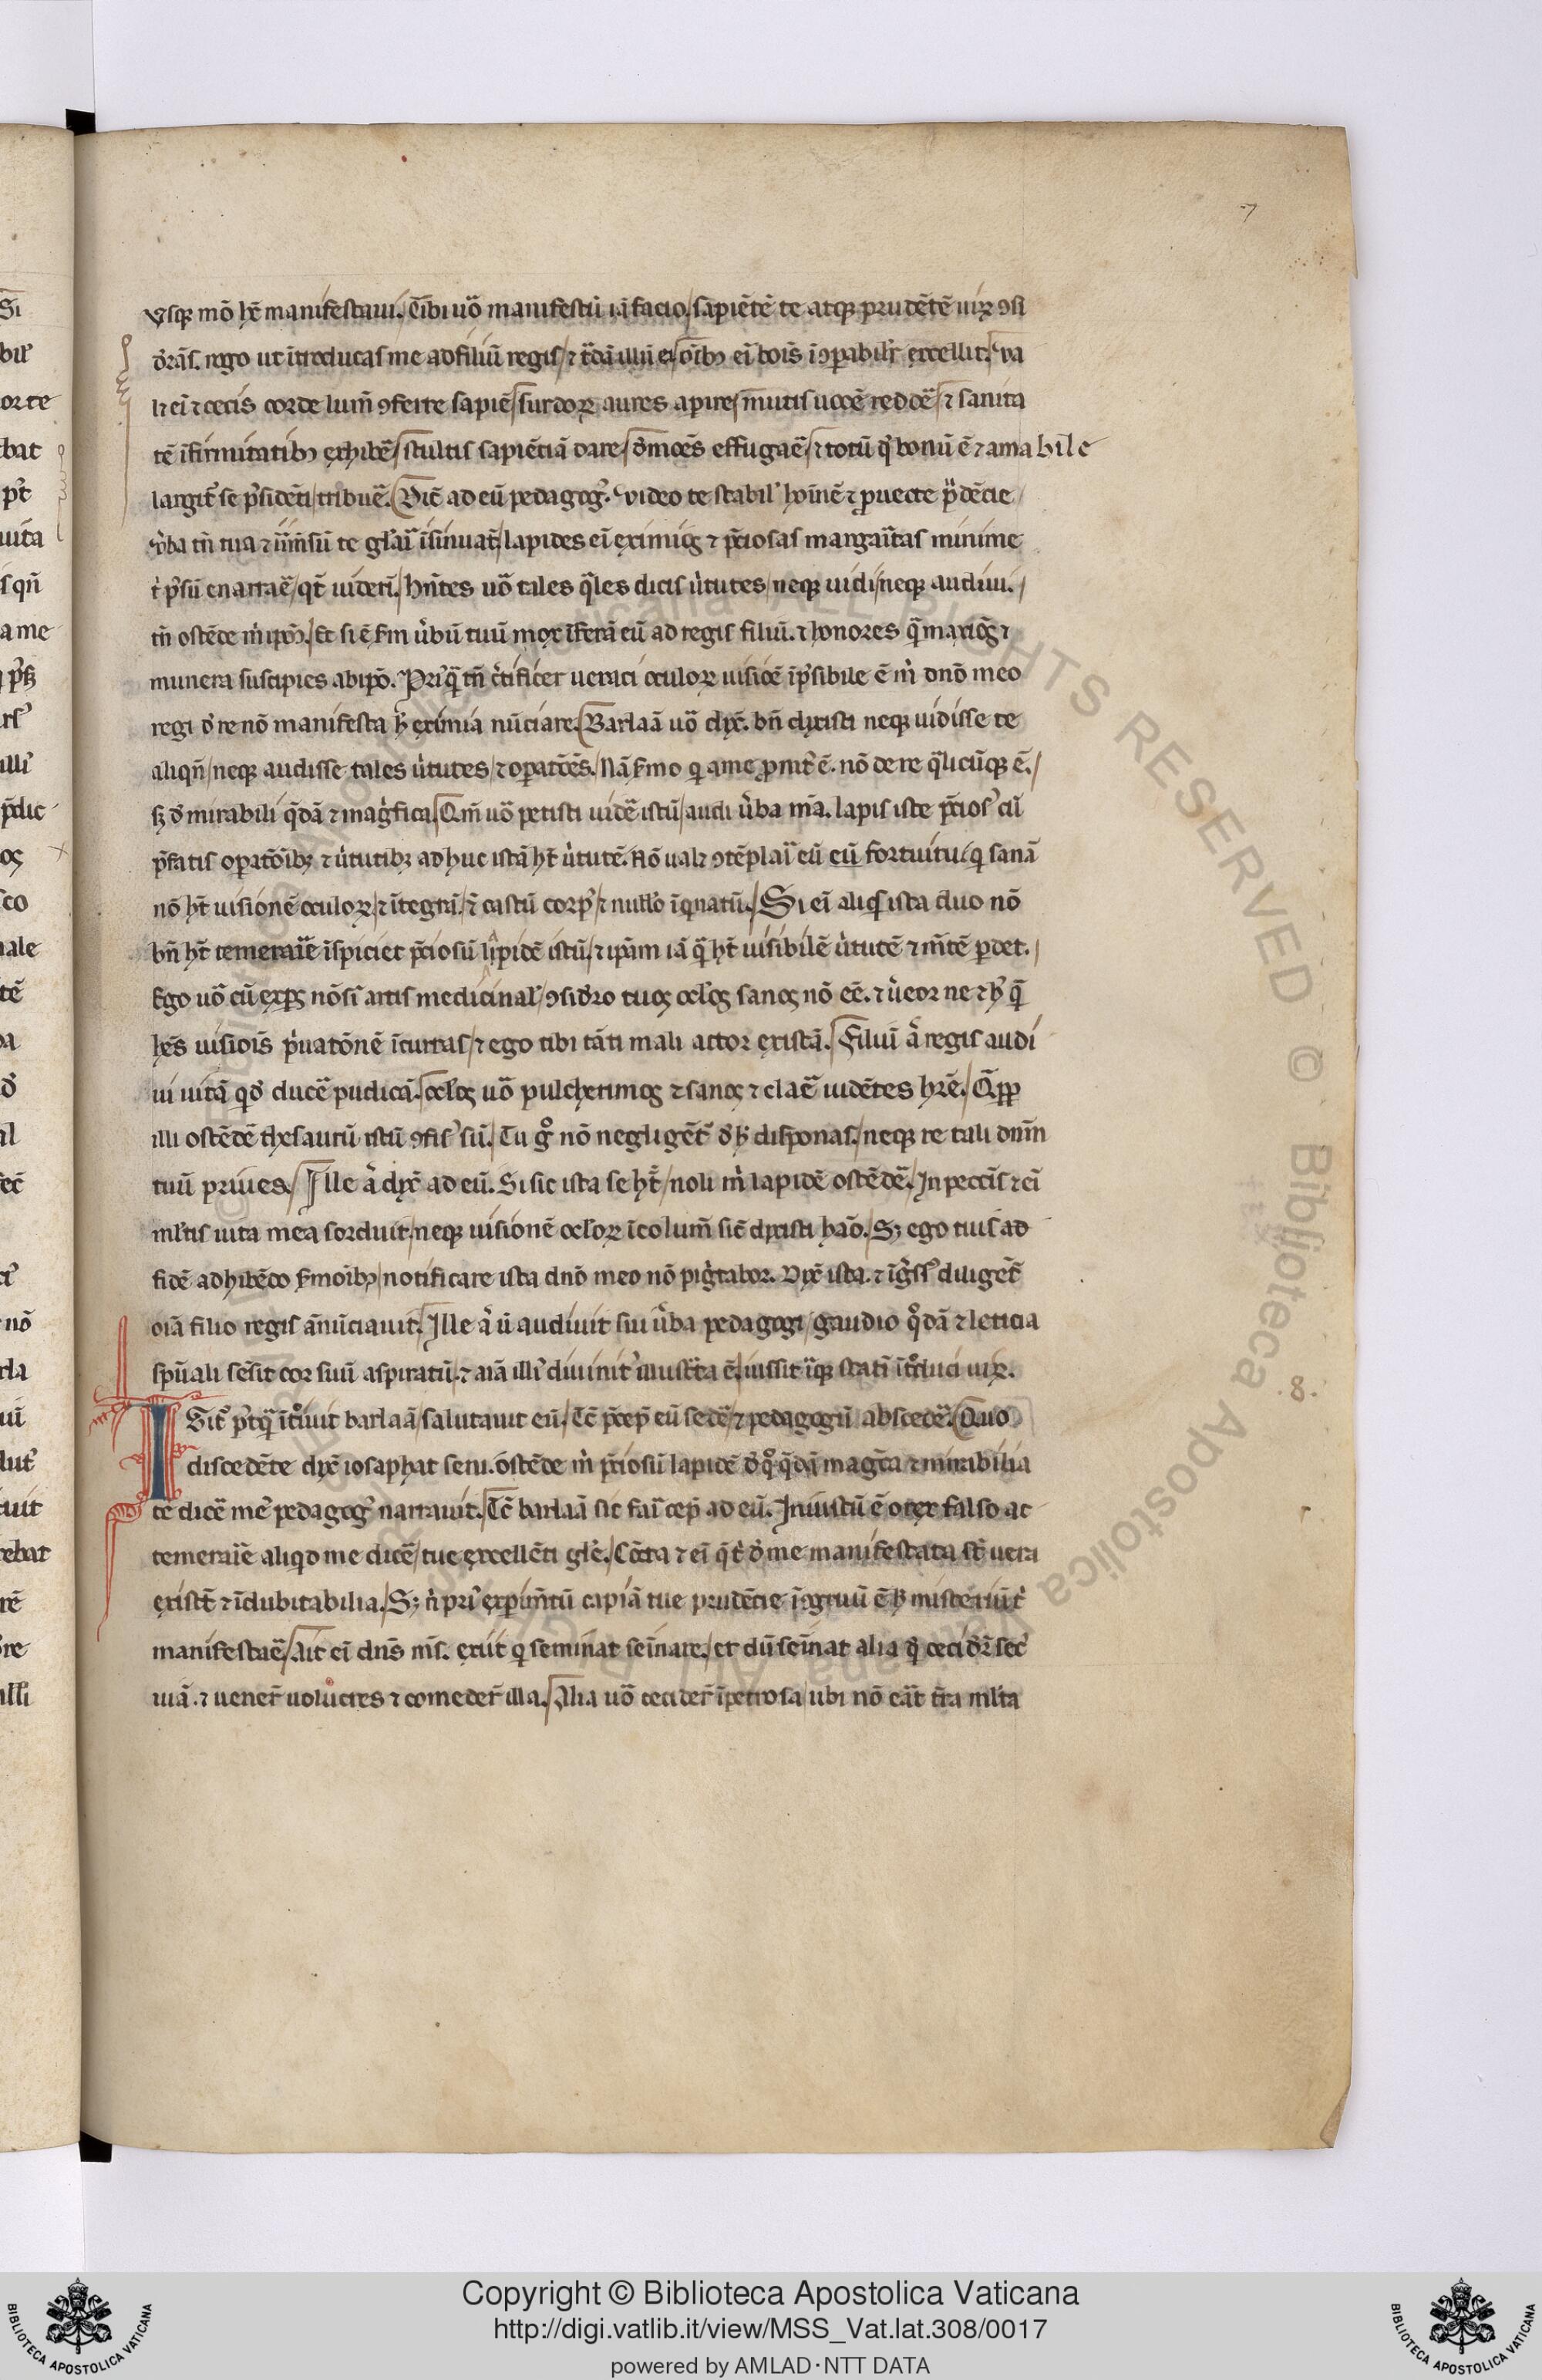 7
vsq; mō hc̄ manifestaui. Tibi uō manifestū iā facio/ sapiētē te atq; prudētē uirꝝ ꝯsi
d̓rās. rogo ut ītroducas me ad filiū regis/ ⁊ t̓dā illū ei/ oīb; eī bois īꝯꝑabilr̄ excellit. va
lꝫ eī ⁊ cecis corde lum̄ ꝯferre sapiē/ surdoꝝ aures aꝑire/ mutis uocē reddē/ ⁊ sanita
tē īfirmitatib; exhibē/ stultis sapiētiā dare/ d̓mōes effugaē/ ⁊ totū qd̓ bonū ē ⁊ amabile
largit̄ se p̄sidēti/ tribuē. Dic̄ ad eū pedagog⁹. video te stabil̓ hoīnē ⁊ ꝓuecte p̄dēcie
ū̓ba tn̄ tua
lapides eī eximios ⁊ p̄ciosas margaītas minime
enarraē/ qt̄ uiderī. hn̄tes uō tales q̄les dicis ū̓tutes/ neq; uidi/ neq; audiui.
tn̄ ostēde m̓ ip̄ō. Et si ē s̄m ū̓bū tuū mox īferā eū ad regis filiū. ⁊ honores q̄ maxīos ⁊
munera suscipies ab ip̄o. Pri⁹q̄ tn̄ c̓tificer ueraci oculoꝝ uisiōē īp̄sibile ē m̓ dn̄o meo
regi d̓ re nō manifesta h̄ eximia nūciare. Barlaā uō dix̄. bn̄ dixisti neq; uidisse te
aliqn̄/ neq; audisse tales ū̓tutes/ ⁊ oꝑatōēs. Nā s̄mo q̇ a me ꝓmit̄ ē. nō de re q̄licūq; ē.
sꝫ d̓ mirabili q̄dā ⁊ mag̓fica. Qm̄ uō petisti uidē istū/ audi ū̓ba m̄a. lapis iste p̄cios⁹ cū
p̄fatis oꝑatōib; ⁊ ū̓tutib; adhuc istā ht̄ ū̓tutē. Nō ualꝫ ꝯtēplaī eū eū fortuitu/ q̇ sanā
nō ht̄ uisionē oculoꝝ/ ⁊ ītegrā/ ⁊ castū corp⁹/ ⁊ nullo īq̇natū. Si eī aliq̇s ista duo nō
bn̄ ht̄ temeraīe īspiciet p̄ciosū lapidē istū/ ⁊ ip̄am iā q̄ ht̄ uisibilē ū̓tutē ⁊ m̄tē ꝑdet.
Ego uō cū exꝑs nō sī artis medicinal̓/ ꝯsid̓ro tuos ocl̓os sanos nō eē. ⁊ ū̓eor ne ⁊ h̄ q̄
hēs uisiois p̓uatōnē īcurras/ ⁊ ego tibi tāti mali actor existā. Filiū ā regis audi
ui uitā q̇d̓ ducē pudicā. ocl̓os uō pulcherrimos ⁊ sanos ⁊ claē uidētes hr̄ē. Q̄ꝓꝑ
illi ostēdē thesaurū istū ꝯfis⁹ sū. Tu g̊ nō negligēt̄ d̓ h̄ disponas/ neq; re tali dn̄m
tuū priues. Ille ā dix̄ ad eū. Si sic ista se hn̄t/ noli m̓ lapidē ostēdē. In pecc̄is ⁊ eī
ml̓tis uita mea sorduit/ neq; uisionē ocl̓oꝝ īcolum̄ sic̄ dixisti hēo. Sꝫ ego tuis ad
fidē adhibēdo s̄moib; notificare ista dn̄o meo nō pig̓tabor. Dix̄ ista. ⁊ īg̓ss⁹ diligēt̄
oīa filio regis ānūciauit. Ille ā ū audiuit sui ū̓ba pedagogi/ gaudio q̊dā ⁊ leticia
sp̄uali sēsit cor suū aspiratū. ⁊ aīā illi⁹ diuinit⁹ illust̄ta ē/ iussit īq; statī ītroduci uirꝝ.
ITit̓ p̄tq̄ īt̊iuit barlaā/ salutauit eū. Tc̄ p̄cep̄ eū sedē/ ⁊ pedagogū abscedē. Quo
discedēte dix̄ iosaphat seni. ostēde m̓ p̄ciosū lapidē d̓ q̊ q̄dā magā ⁊ mirabilia
te dicē me⁹ pedagog⁹ narrauit. Tc̄ barlaā sic faī cep̄ ad eū. Iniustū ē o rex falso ac
temeraīe aliq̇d me dicē/ tue excellēti gl̓e. Cūcta ⁊ eī q̄ t̓ d̓ me manifestata st̄ uera
exist̄t ⁊ īdubitabilia. Sꝫ n̓ pri⁹ exꝑim̄tū capiā tue prudēcie īꝯgruū ē h̄ misteriū t̓
manifestaē/ Ait eī dn̄s m̄s. exiit q̇ seminat seīnare/ et dū seīnat alia q̇d̓ cecid̓r̄ sec̄
uiā. ⁊ uener̄ uolucres ⁊ comeder̄ illa. Alia uō cecider̄ ī petrosa/ ubi nō eāt t̄ra ml̓ta
8.
Copyright © Biblioteca Apostolica Vaticana
http://digi.vatlib.it/view/MSS_Vat.lat.308/0017
powered by AMLAD·NTT DATA
BIBLIOTECA APOSTOLICA VATICANA
BIBLIOTECA APOSTOLICA VATICANA